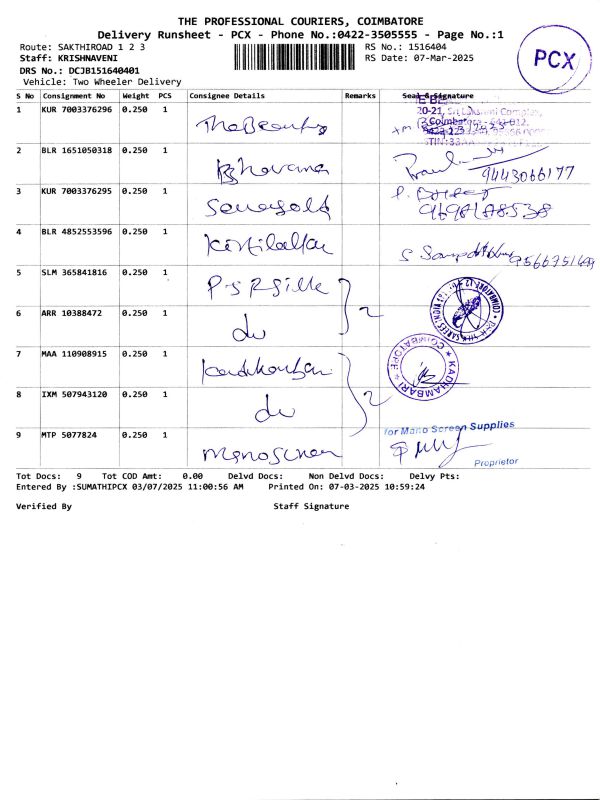 THE PROFESSIONAL COURIERS, COIMBATORE
Delivery Runsheet - PCX - Phone No.:0422-3505555 - Page No.:1
Route: SAKTHIROAD 1 2 3
RS No.: 1516404
Staff: KRISHNAVENI
RS Date: 07-Mar-2025
DRS No.: DCJB151640401
Vehicle: Two Wheeler Delivery
PCX
S No Consignment No Weight PCS Consignee Details Remarks Seal & Signature
1 KUR 7003376296 0.250 1 The Beauty
20-21, Sri Lakshmi Complex,
Coimbatore - 641 012.
2 BLR 1651050318 0.250 1 Bhavana 9443066177
3 KUR 7003376295 0.250 1
4 BLR 4852553596 0.250 1 Kirtilallal
5 SLM 365841816 0.250 1 P S R Silk
6 ARR 10388472 0.250 1 do 2
7 MAA 110908915 0.250 1
KADHAMBARI COIMBATORE
8 IXM 507943120 0.250 1 do 2
for Mano Screen Supplies
9 MTP 5077824 0.250 1 Manoscreen
Proprietor
Tot Docs: 9 Tot COD Amt: 0.00 Delvd Docs: Non Delvd Docs: Delvy Pts:
Entered By :SUMATHIPCX 03/07/2025 11:00:56 AM Printed On: 07-03-2025 10:59:24
Verified By Staff Signature